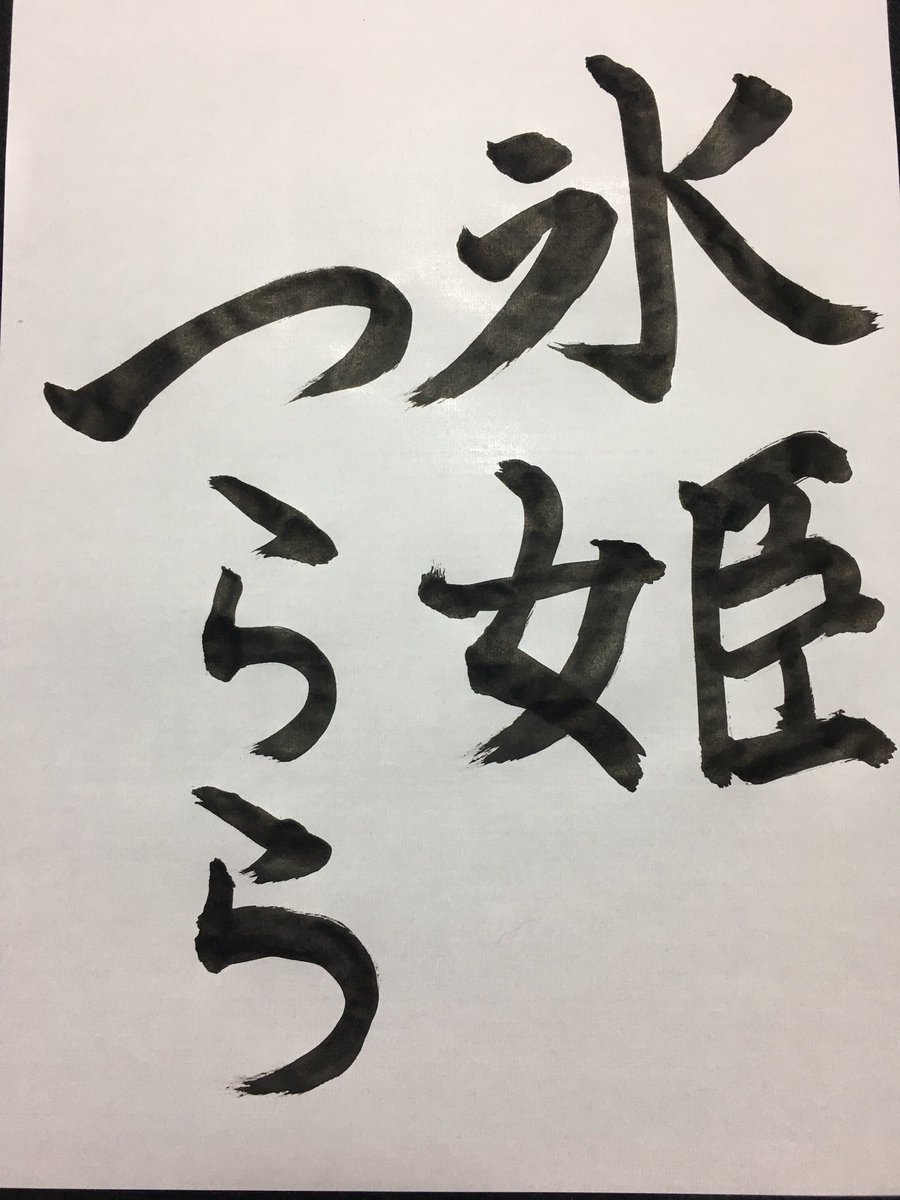 氷姫
つらら